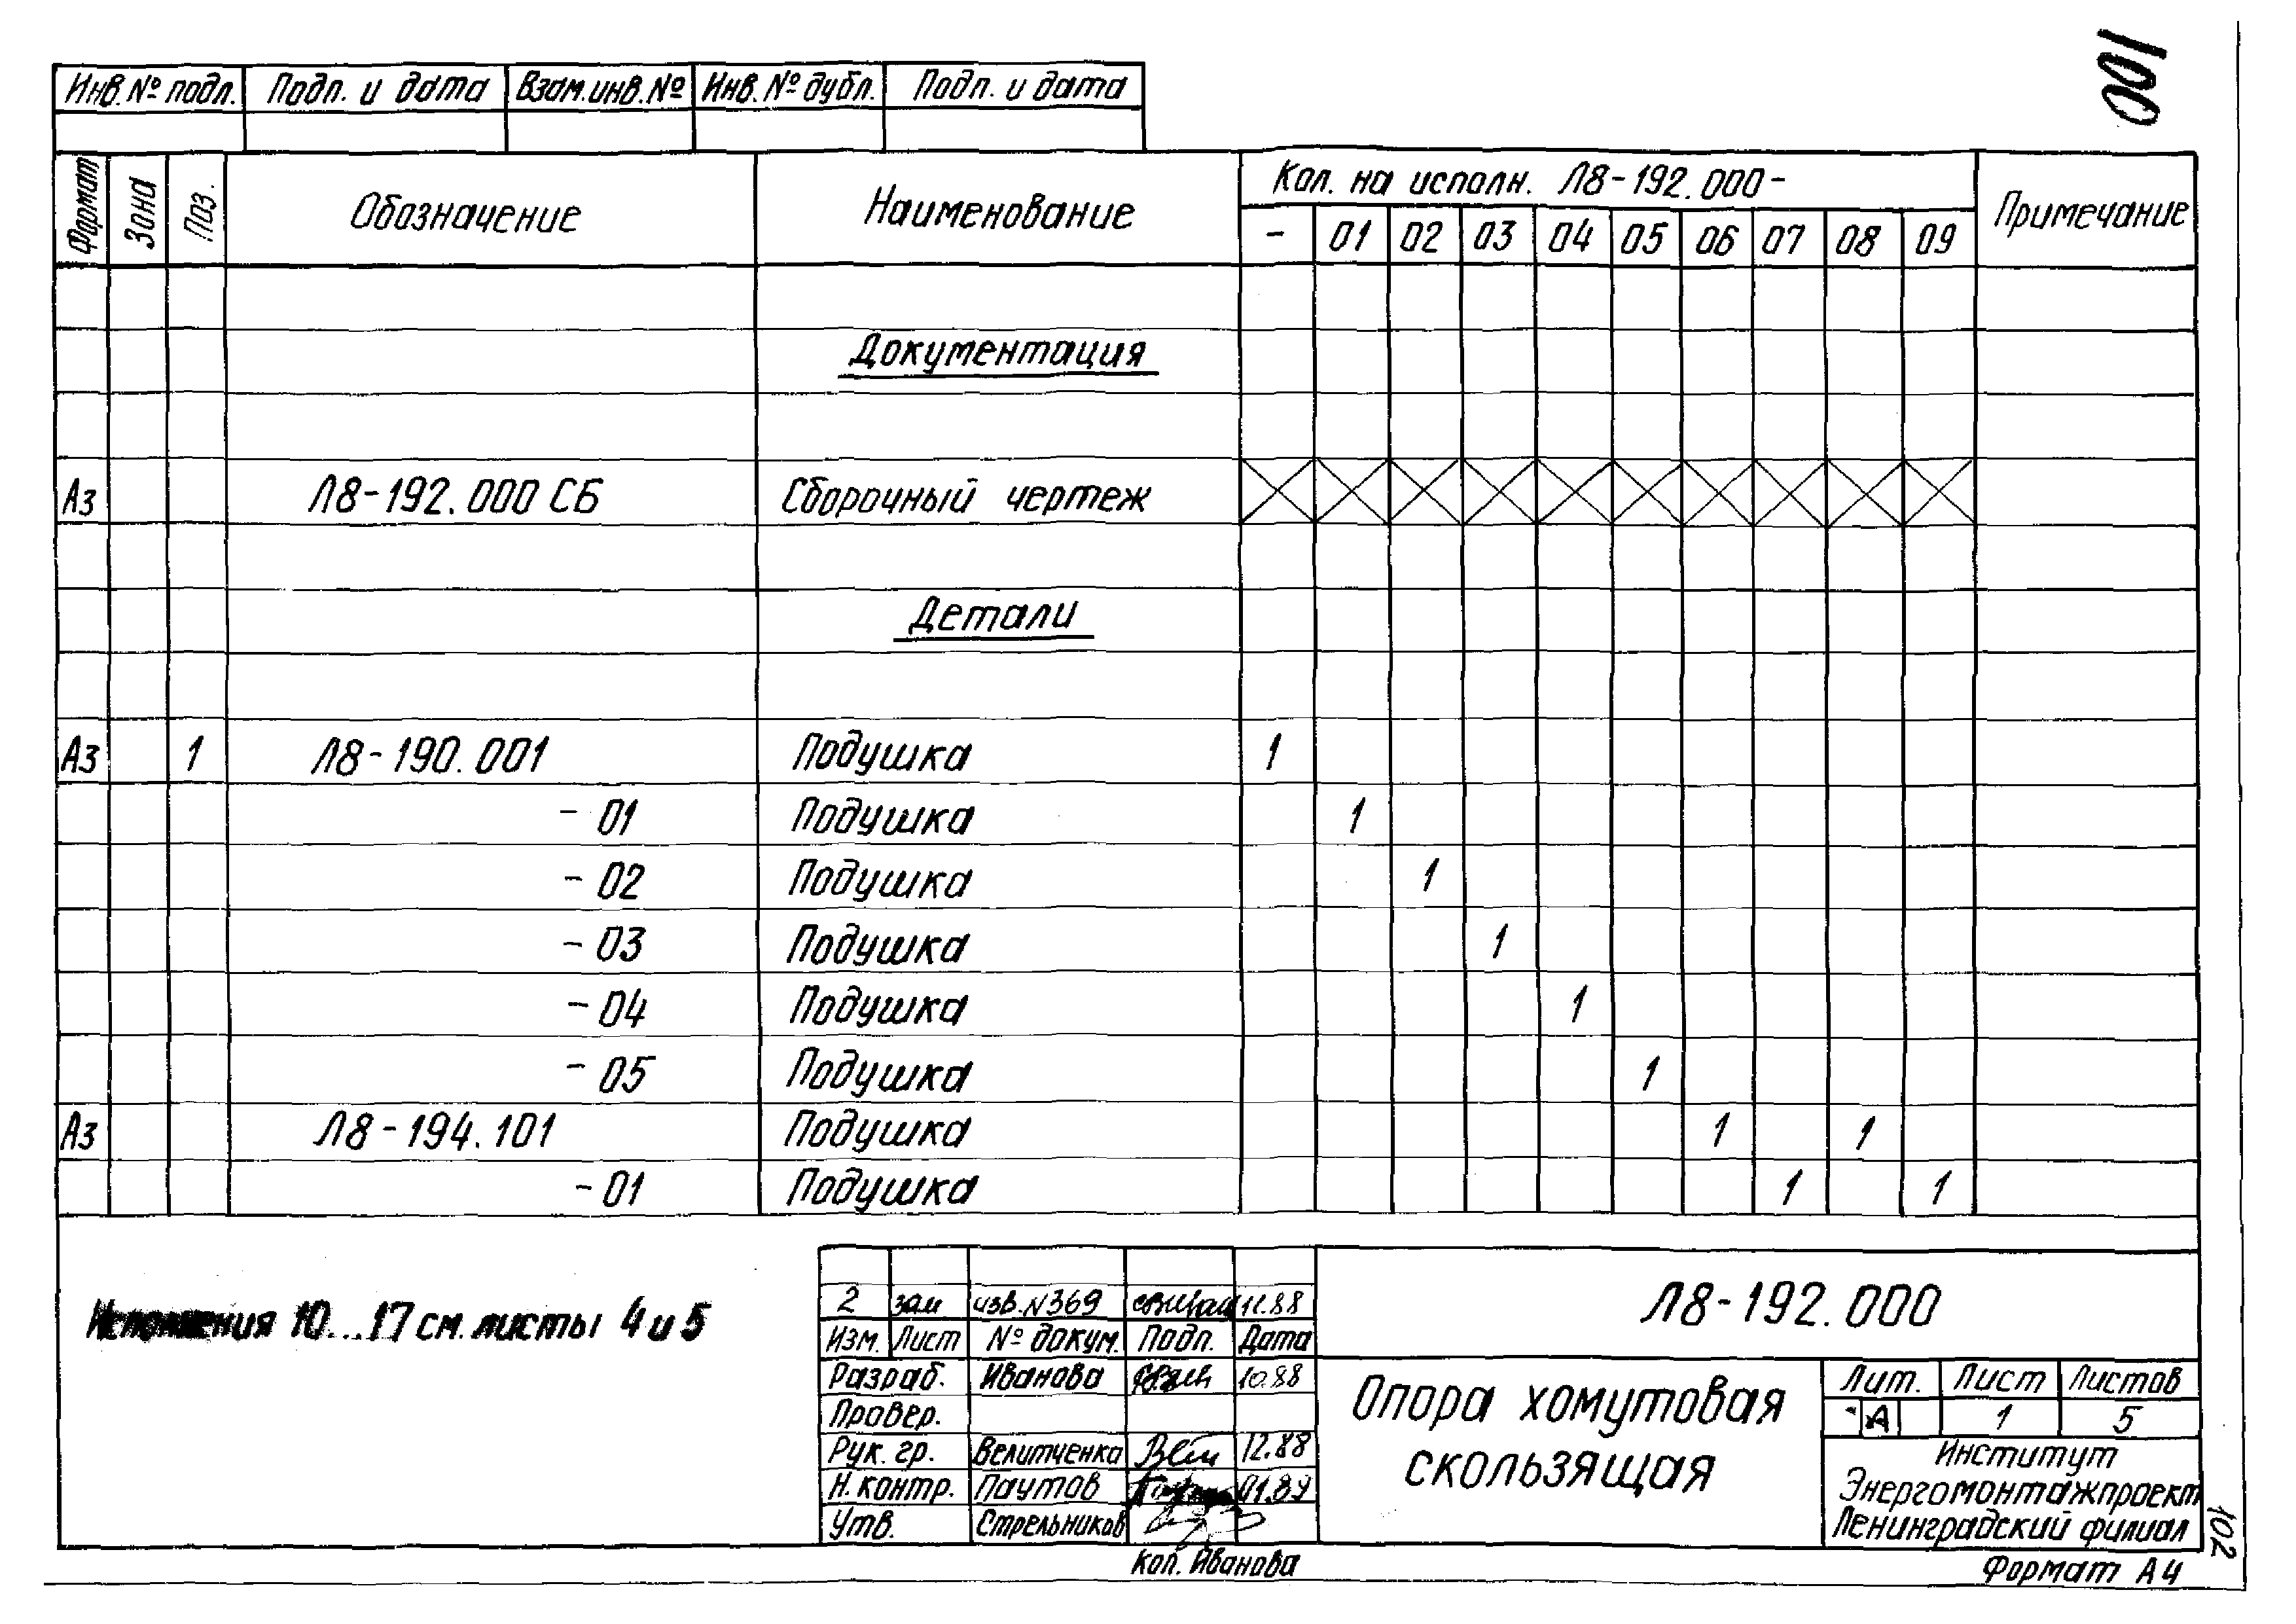 100
Инв.№ подл. Подп. и дата Взам.инв.№ Инв.№ дубл. Подп. и дата
Формат Зона Поз. Обозначение Наименование Кол. на исполн. Л8-192.000- Примечание
- 01 02 03 04 05 06 07 08 09
Документация
А3 Л8-192.000 СБ Сборочный чертеж
Детали
А3 1 Л8-190.001 Подушка 1
-01 Подушка 1
-02 Подушка 1
-03 Подушка 1
-04 Подушка 1
-05 Подушка 1
А3 Л8-194.101 Подушка 1 1
-01 Подушка 1 1
Исполнения 10...17 см. листы 4 и 5
2 зам изв.№369 11.88
Изм. Лист № докум. Подп. Дата
Разраб. Иванова 10.88
Провер.
Рук. гр. Велитченка 12.88
Н. контр. Паутов 01.89
Утв. Стрельников
Л8-192.000
Опора хомутовая
скользящая
Лит. Лист Листов
А 1 5
Институт
Энергомонтажпроект
Ленинградский филиал
102
Коп. Иванова
Формат А4